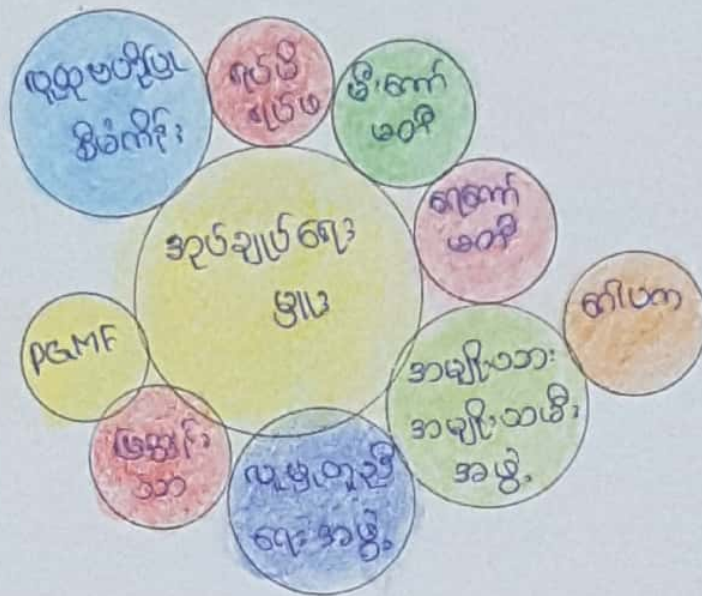 လူထုဗဟိုပြု
စီမံကိန်း
ရပ်မိ
ရပ်ဖ
မီးကော်
မတီ
ရေကော်
မတီ
အုပ်ချုပ်ရေး
မှူး
PGMF
မြစိမ်း
သာ
လူမှုကူညီ
ရေးအဖွဲ့
အမျိုးသား
အမျိုးသမီး
အဖွဲ့